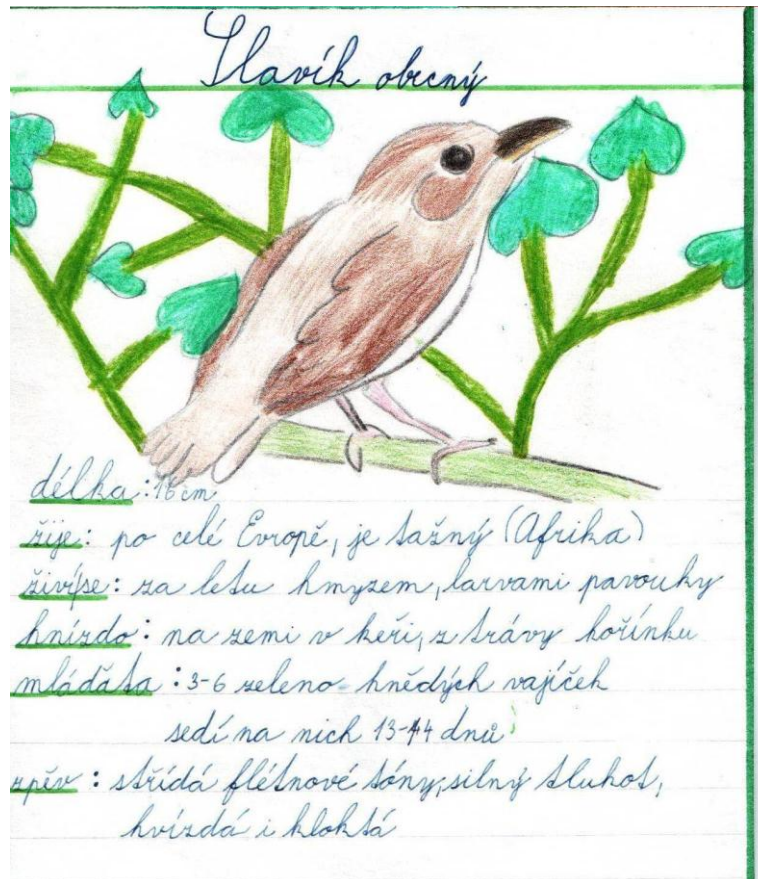 Slavík obecný
délka: 16 cm
žije: po celé Evropě, je tažný (Afrika)
živí se: za letu hmyzem, larvami pavouky
hnízdo: na zemi v keři, z trávy kořínku
mláďata: 3-6 zeleno-hnědých vajíček
sedí na nich 13-14 dnů
zpěv: střídá flétnové tóny, silný tlukot,
hvízdá i kloktá